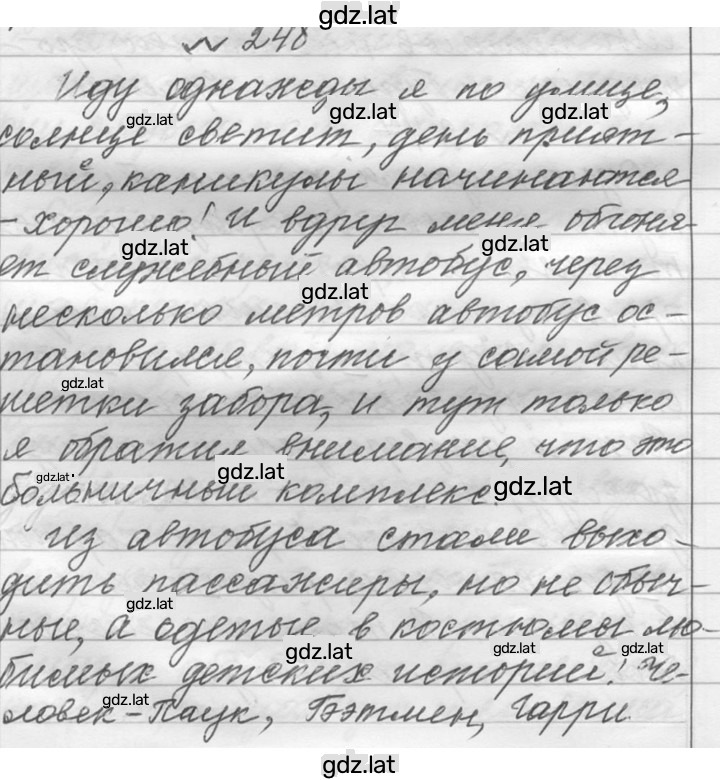 gdz.lat
№ 248
Иду однажды я по улице,
солнце светит, день прият-
ный, каникулы начинаются
- хорошо! И вдруг меня обгоня-
ет служебный автобус, через
несколько метров автобус ос-
тановился, почти у самой ре-
шетки забора, и тут только
я обратил внимание, что это
больничный комплекс.
Из автобуса стали выхо-
дить пассажиры, но не обыч-
ные, а одетые в костюмы лю-
бимых детских историй! Че-
ловек-Паук, Бэтмен, Гарри
gdz.lat